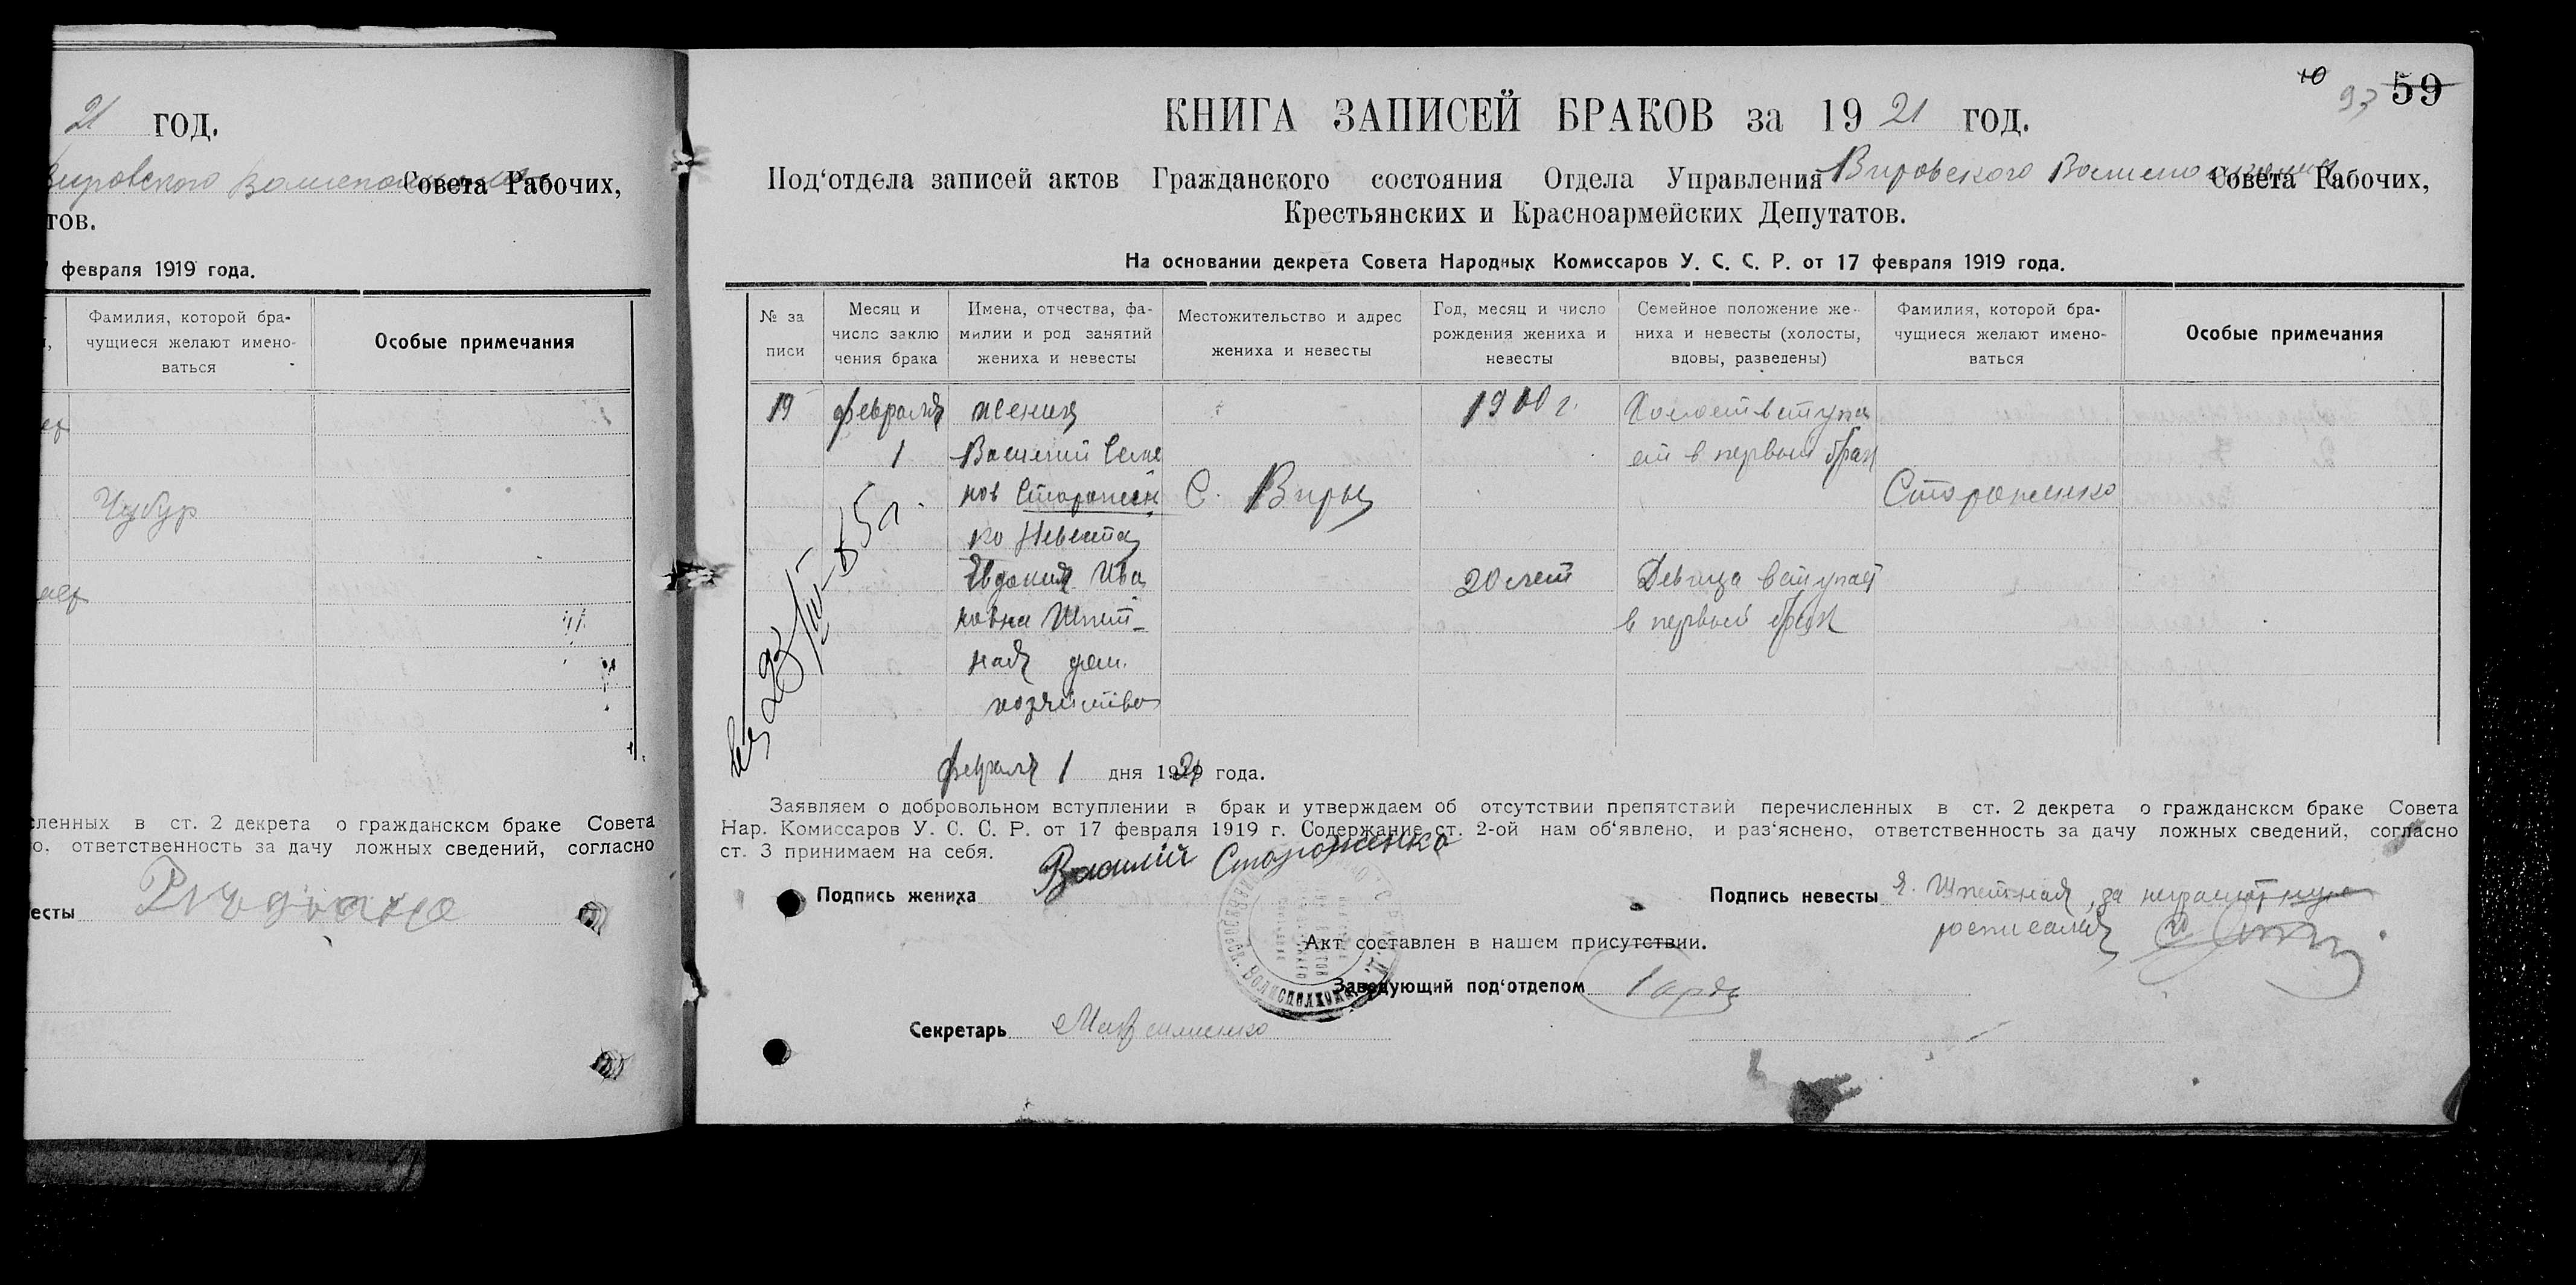 21 год.
Вировского Волисполкома Совета Рабочих,
тов.
февраля 1919 года.
Фамилия, которой бра-
чущиеся желают имено-
ваться
Особые примечания
Чубур
сленных в ст. 2 декрета о гражданском браке Совета
о. ответственность за дачу ложных сведений, согласно
весты
59
93
КНИГА ЗАПИСЕЙ БРАКОВ за 1921 год.
Под‘отдела записей актов Гражданского состояния Отдела Управления Вировского Волисполкома Совета Рабочих,
Крестьянских и Красноармейских Депутатов.
На основании декрета Совета Народных Комиссаров У. С. С. Р. от 17 февраля 1919 года.
№ за
писи
Месяц и
число заклю
чения брака
Имена, отчества, фа-
милии и род занятий
жениха и невесты
Местожительство и адрес
жениха и невесты
Год, месяц и число
рождения жениха и
невесты
Семейное положение же-
ниха и невесты (холосты,
вдовы, разведены)
Фамилия, которой бра-
чущиеся желают имено-
ваться
Особые примечания
19
февраля
1
жених
Василий Семе
нов Сторожен
ко Невеста
Евдокия Ива
новна Шпет-
ная дом.
хозяйство
С. Виры
1900 г.
20 лет
Холост вступа
ет в первый брак
Девица вступает
в первый брак
Стороженко
февраля 1 дня 1921 года.
Заявляем о добровольном вступлении в брак и утверждаем об отсутствии препятствий перечисленных в ст. 2 декрета о гражданском браке Совета
Нар. Комиссаров У. С. С. Р. от 17 февраля 1919 г. Содержание ст. 2-ой нам об‘явлено, и раз‘яснено, ответственность за дачу ложных сведений, согласно
ст. 3 принимаем на себя.
Подпись жениха Василий Стороженко
Подпись невесты Я. Шпетная, за неграмотную
росписался
Акт составлен в нашем присутствии.
Заведующий под‘отделом
Секретарь Максименко